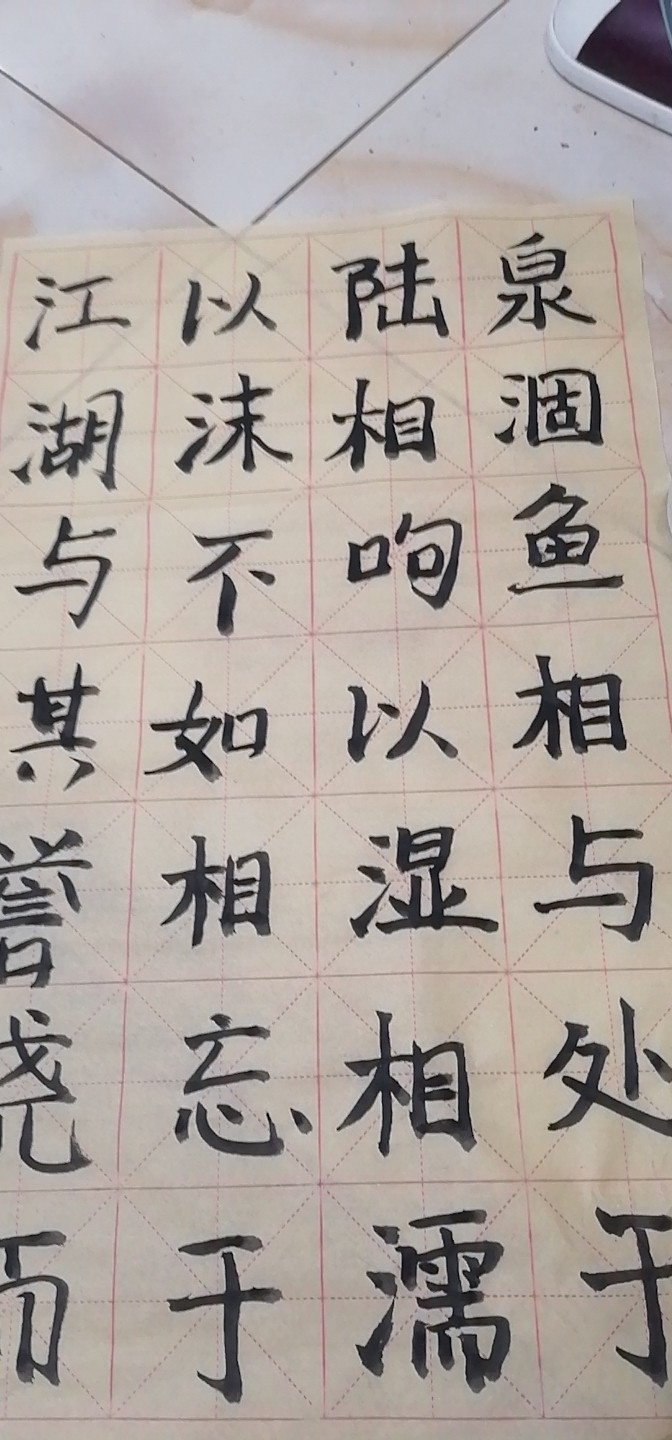 泉涸鱼相与处于
陆相呴以湿相濡
以沫不如相忘于
江湖与其誉尧而